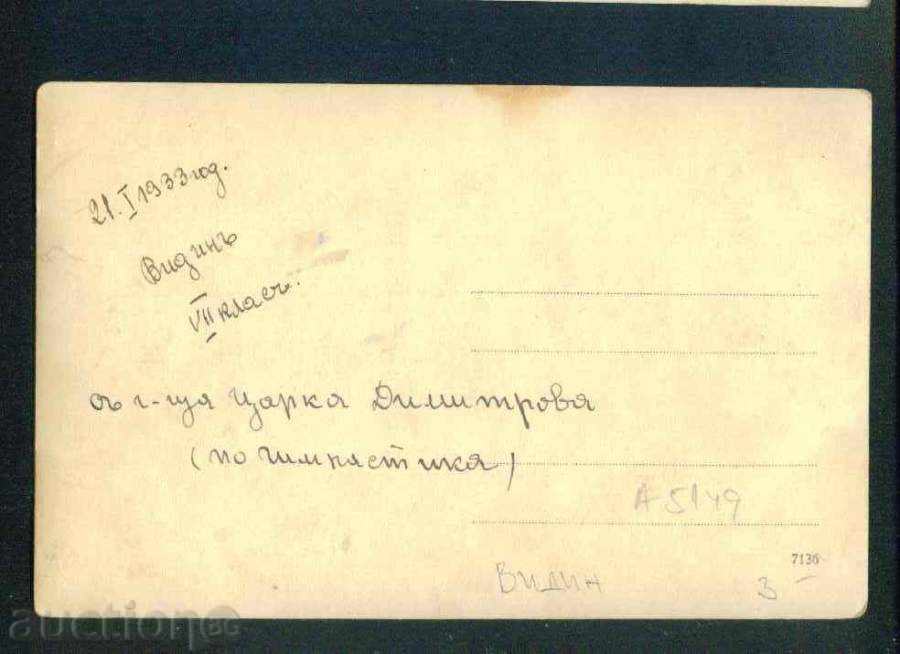 21.I 1933 год.
Видинъ
VII класъ.
съ г-ца Царка Димитрова
(по гимнастика)
A 5149
7136
Видин
3 –
auction BG